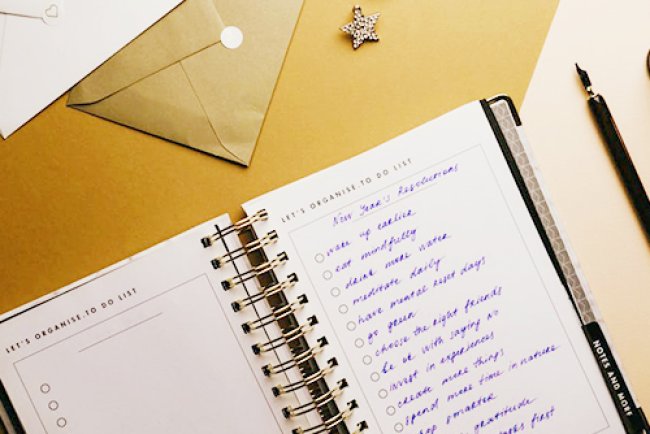 LET'S ORGANISE.TO DO LIST
LET'S ORGANISE.TO DO LIST
New Year's Resolutions
wake up earlier
eat mindfully
drink more water
meditate daily
have mental reset days
go green
choose the right friends
be ok with saying no
invest in experiences
create more things
spend more time in nature
smarter
gratitude
first
NOTES AND MORE